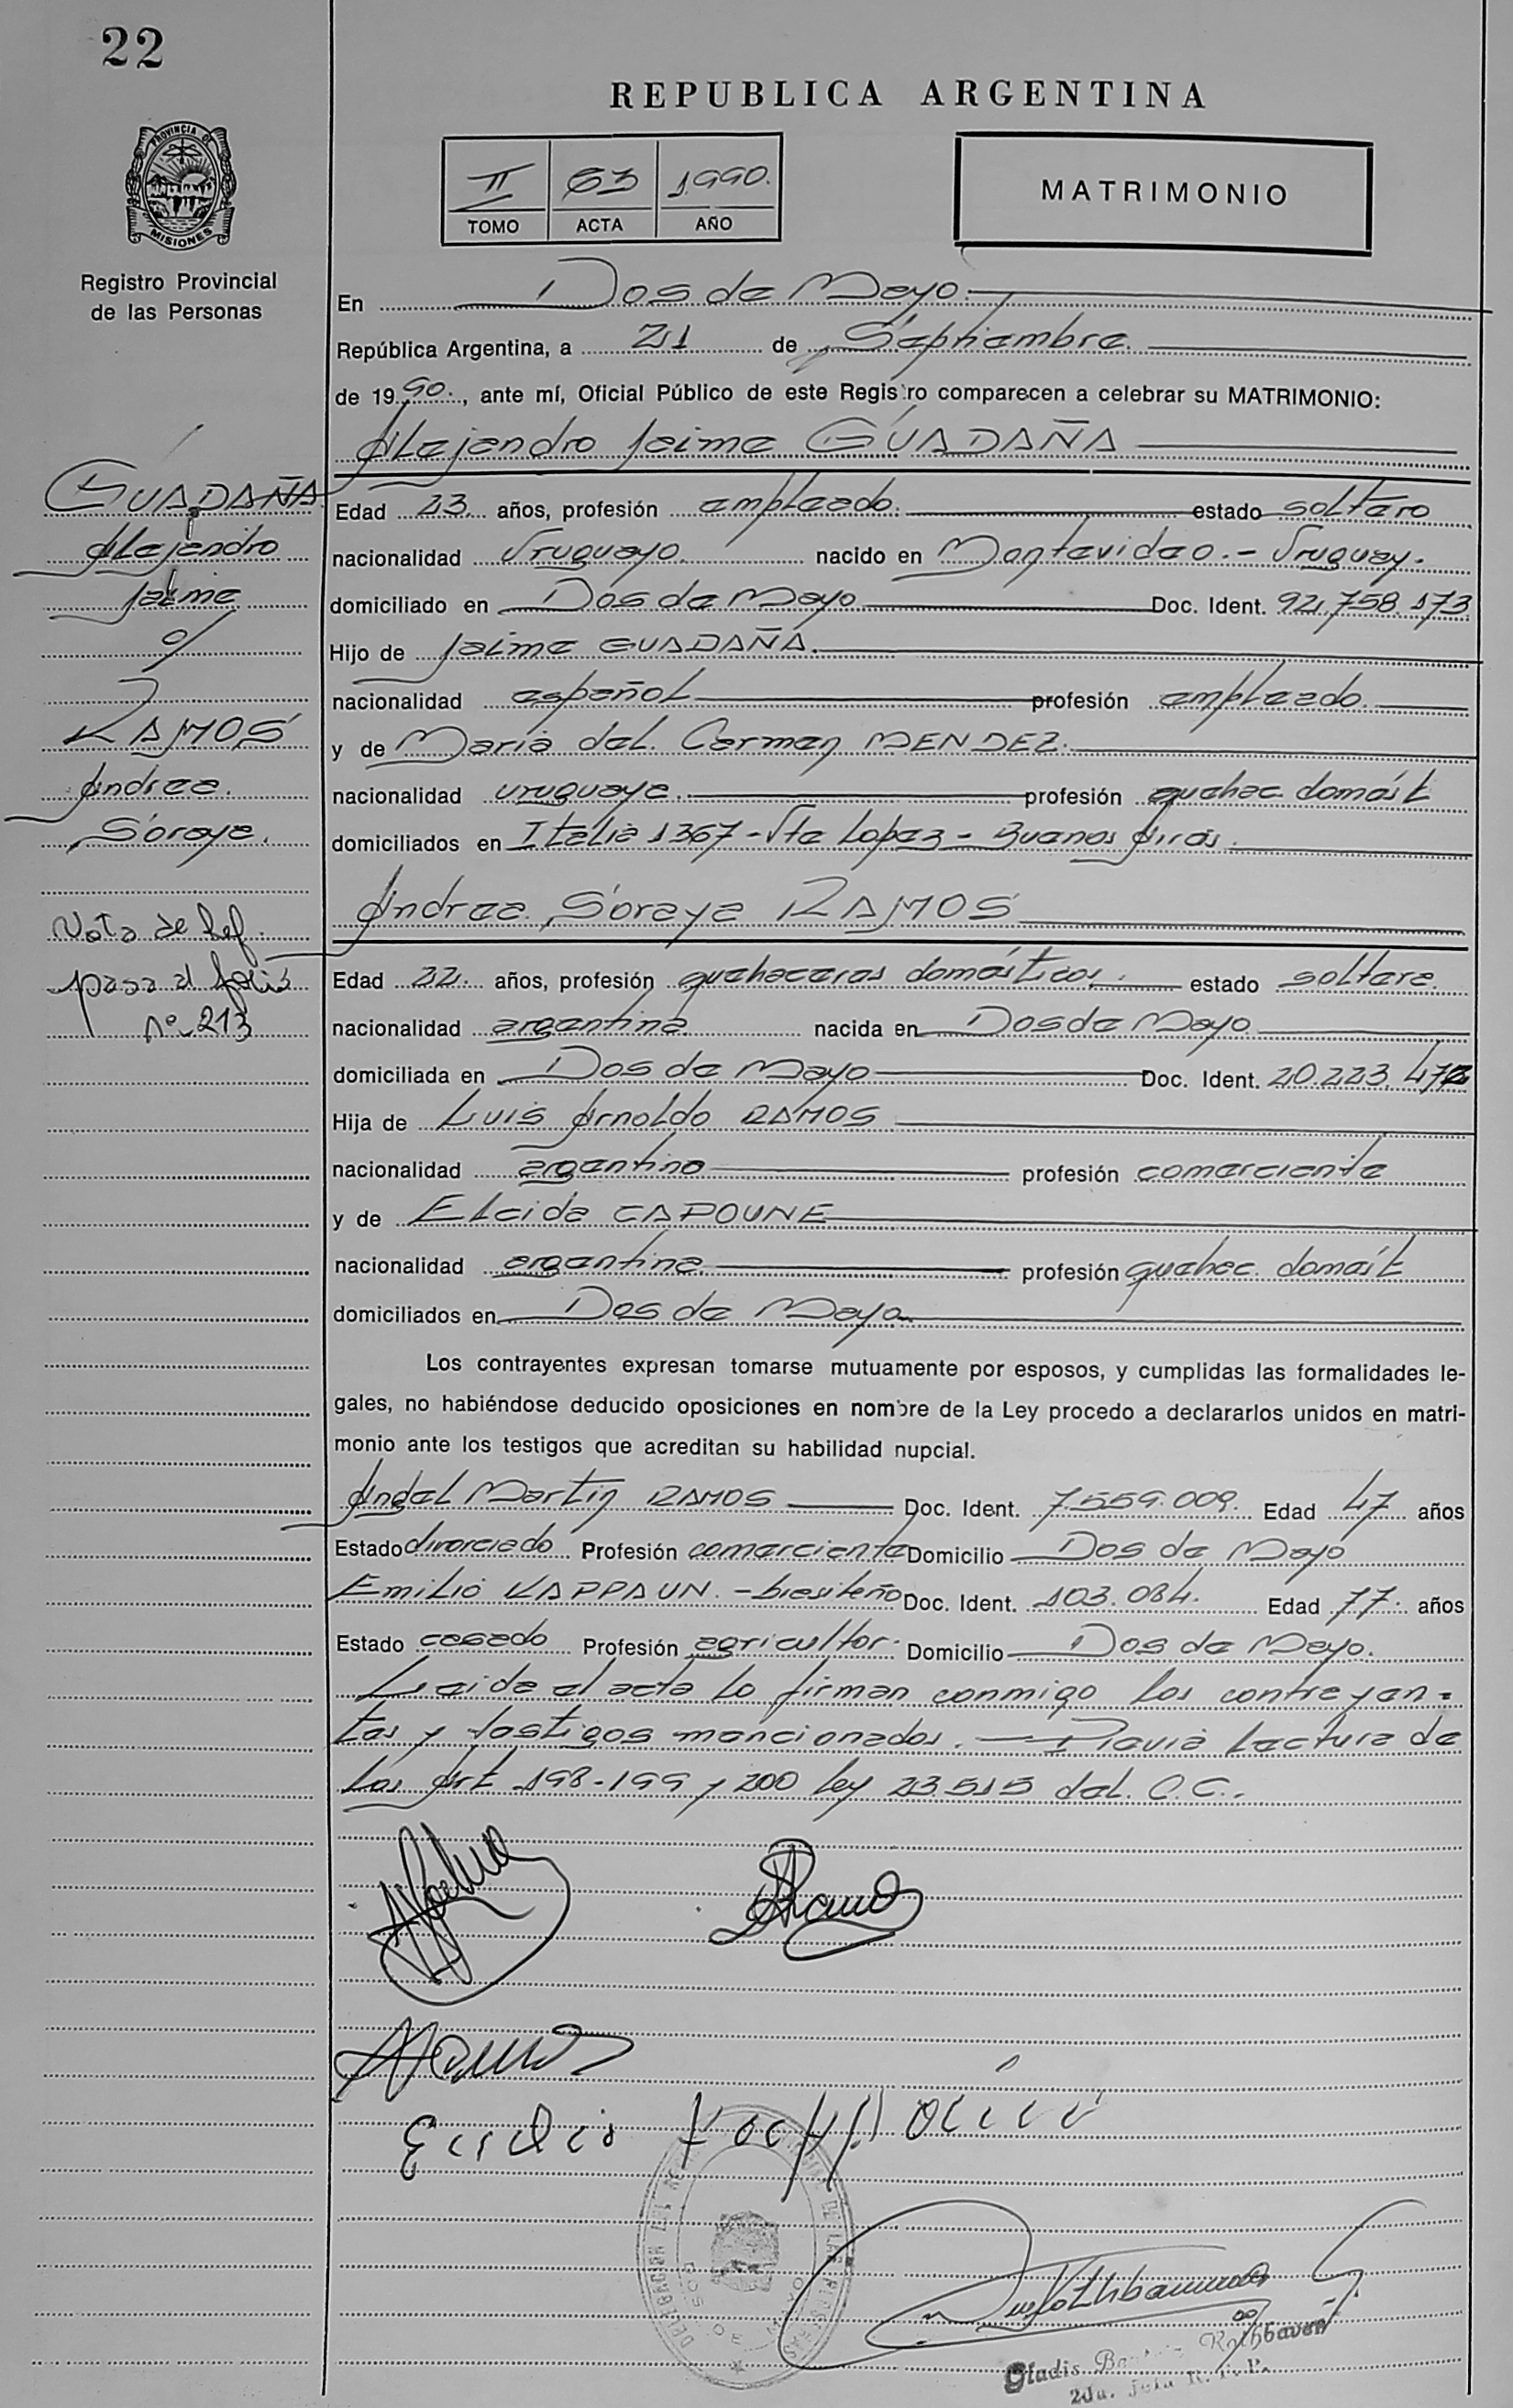 22
REPUBLICA ARGENTINA
PROVINCIA DE
MISIONES
Registro Provincial
de las Personas
II 63 1.990.
TOMO ACTA AÑO
MATRIMONIO
En Dos de Mayo.
República Argentina, a 21 de Septiembre.
de 1990., ante mí, Oficial Público de este Registro comparecen a celebrar su MATRIMONIO:
Alejandro Jaime GUADAÑA
Edad 23 años, profesión empleado. estado soltero
nacionalidad Uruguayo. nacido en Montevideo.- Uruguay.
domiciliado en Dos de Mayo Doc. Ident. 92.758.173
Hijo de Jaime GUADAÑA.
nacionalidad español profesión empleado.
y de Maria del Carmen MENDEZ.
nacionalidad uruguaya. profesión quehac. domést
domiciliados en Italia 1367-Vte Lopez - Buenos Aires.
Andrea Soraya RAMOS
Edad 22. años, profesión quehaceres domésticos. estado soltera.
nacionalidad argentina nacida en Dos de Mayo
domiciliada en Dos de Mayo Doc. Ident. 20.223.
Hija de Luis Arnoldo RAMOS
nacionalidad argentino profesión comerciante
y de Elcida CAPOUNE
nacionalidad argentina profesión quehac. domést
domiciliados en Dos de Mayo
Los contrayentes expresan tomarse mutuamente por esposos, y cumplidas las formalidades le-
gales, no habiéndose deducido oposiciones en nombre de la Ley procedo a declararlos unidos en matri-
monio ante los testigos que acreditan su habilidad nupcial.
Angel Martin RAMOS Doc. Ident. 7.559.009. Edad 47 años
Estado divorciado Profesión comerciante Domicilio Dos de Mayo
Emilio KAPPAUN.-brasileño Doc. Ident. 103.084. Edad 77. años
Estado casado Profesión agricultor. Domicilio Dos de Mayo.
Leida el acta lo firman conmigo los contrayen=
tes y testigos mencionados.- Previa lectura de
los Art 198-199 y 200 ley 23.515 del. C.C..
GUADAÑA
Alejandro
Jaime
c/
RAMOS
Andrea
Soraya.
Nota de Ref.
pasa al folio
nº 213
Ramos
Emilio
DELEGACION DEL DE LAS PERSONAS
DOS DE MAYO
Gladis Rothbaven
2da. Jefa R. P. P.